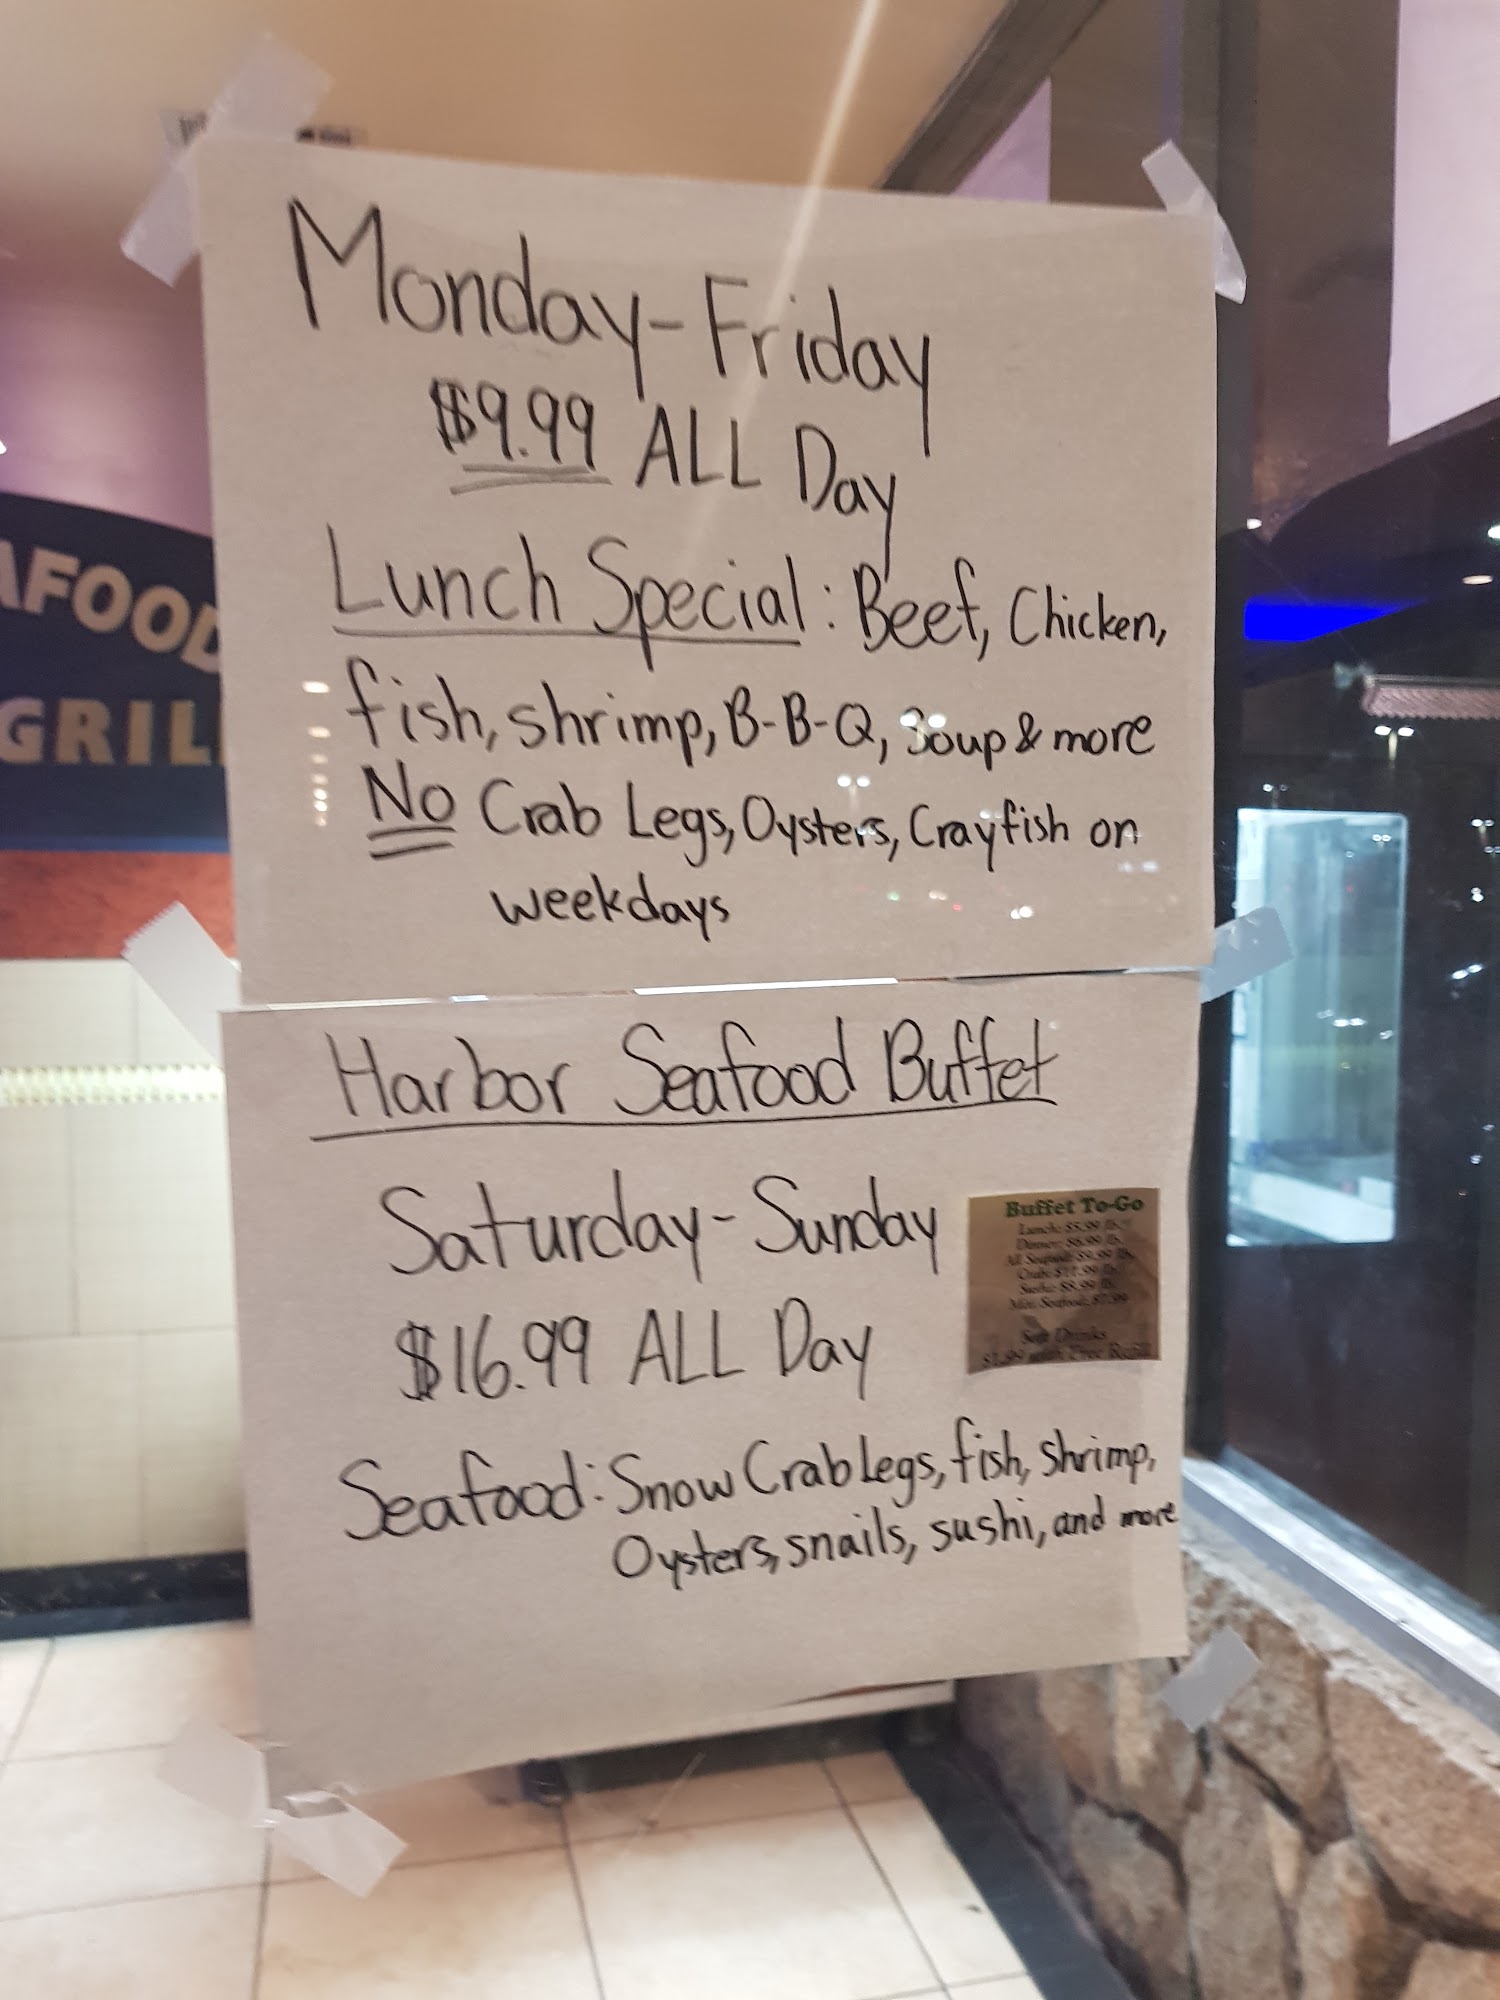 Monday-Friday
$9.99 ALL Day
Lunch Special: Beef, Chicken,
fish, shrimp, B-B-Q, Soup & more
No Crab Legs, Oysters, Crayfish on
weekdays
Harbor Seafood Buffet
Saturday-Sunday
$16.99 ALL Day
Seafood: Snow Crab Legs, fish, shrimp,
Oysters, snails, sushi, and more
Buffet To-Go
Lunch: $5.99 lb.
Dinner: $6.99 lb.
All Seafood: $9.99 lb.
Crab: $11.99 lb.
Sushi: $8.99 lb.
Seafood: $7.99
Soft Drinks
$1.99 with Free Refill
AFOOD
GRILL